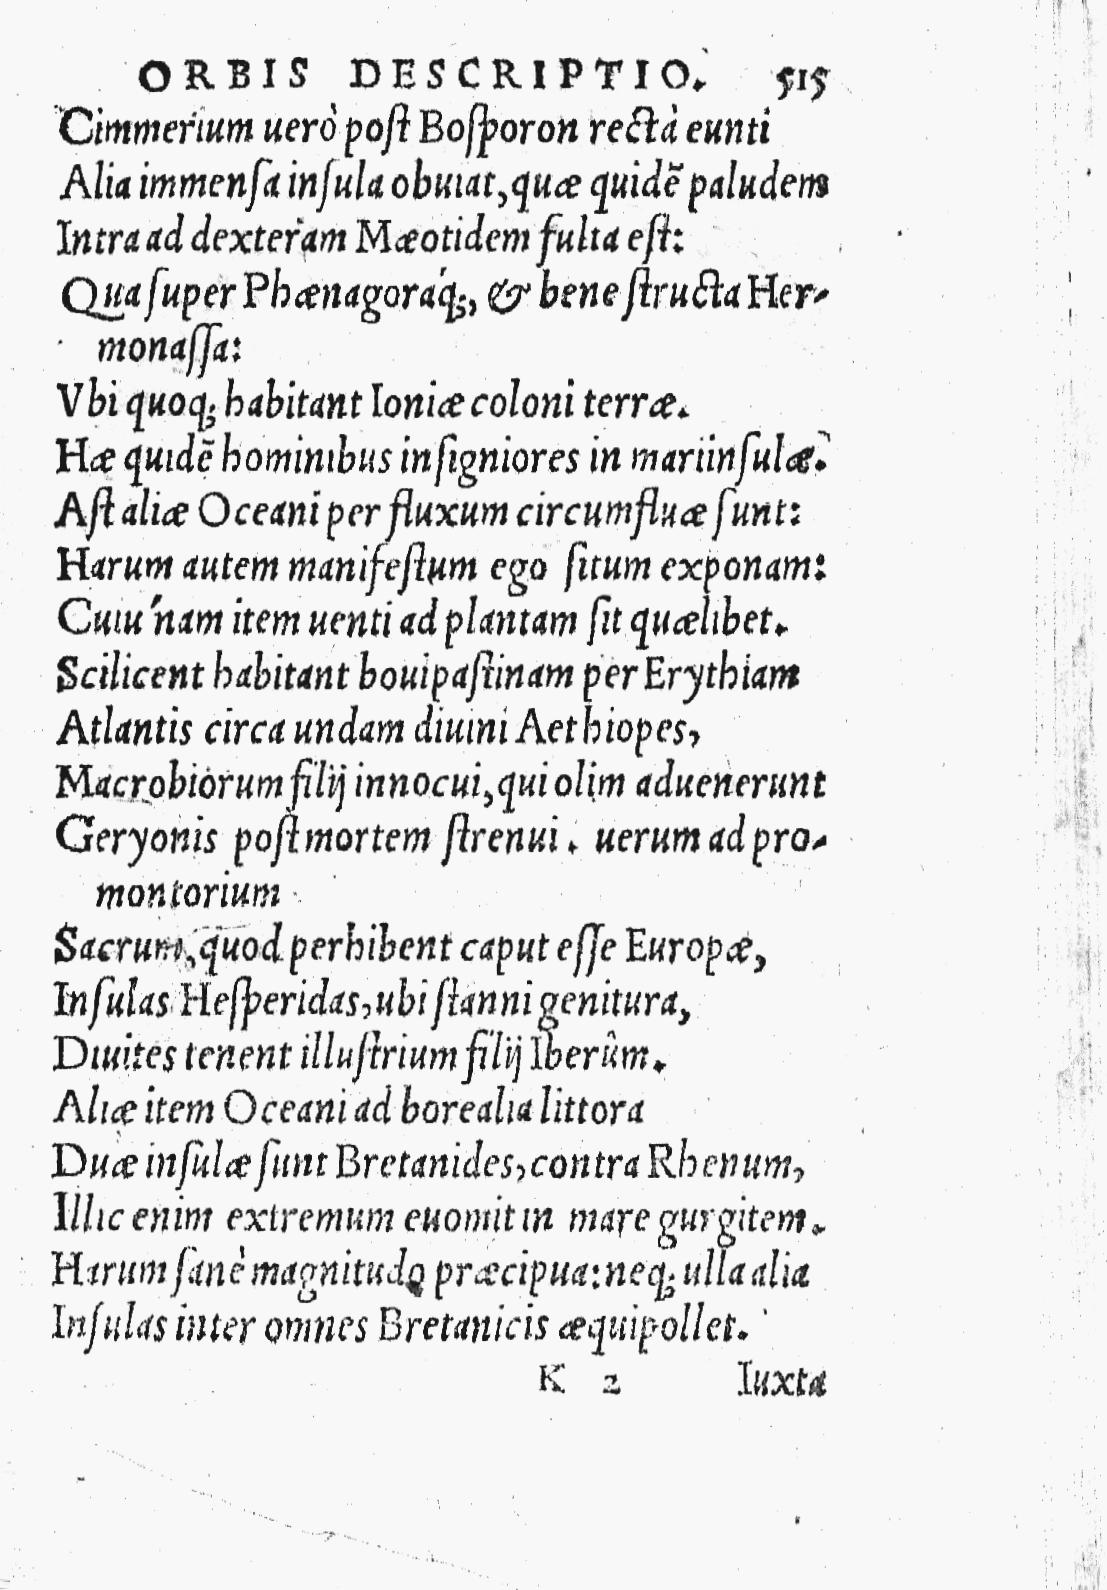 ORBIS DESCRIPTIO. 515
Cimmerium uerò poſt Boſporon rectà eunti
Alia immenſa inſula obuiat, quæ quidẽ paludem
Intra ad dexteram Mæotidem fulta eſt:
Qua ſuper Phænagoraq́;, & bene ſtructa Her-
monaſſa:
Vbi quoq; habitant Ioniæ coloni terræ.
Hæ quidẽ hominibus inſigniores in mari inſulæ.
Aſt aliæ Oceani per fluxum circumfluæ ſunt:
Harum autem manifeſtum ego ſitum exponam:
Cuiu'nam item uenti ad plantam ſit quælibet.
Scilicent habitant bouipaſtinam per Erythiam
Atlantis circa undam diuini Aethiopes,
Macrobiorum filij innocui, qui olim aduenerunt
Geryonis poſt mortem ſtrenui. uerum ad pro-
montorium
Sacrum, quod perhibent caput eſſe Europæ,
Inſulas Heſperidas, ubi ſtanni genitura,
Diuites tenent illuſtrium filij Iberûm.
Aliæ item Oceani ad borealia littora
Duæ inſulæ ſunt Bretanides, contra Rhenum,
Illic enim extremum euomit in mare gurgitem.
Harum ſanè magnitudo præcipua: neq; ulla alia
Inſulas inter omnes Bretanicis æquipollet.
K 2 Iuxta